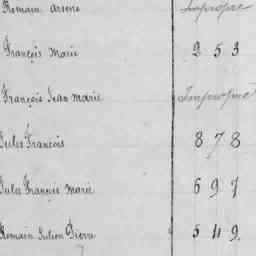 Romain Arsene Impropre
François Marie 253
François Jean Marie Impropre
Jules François 878
Jules François Marie 697
Romain Julien Pierre 549.